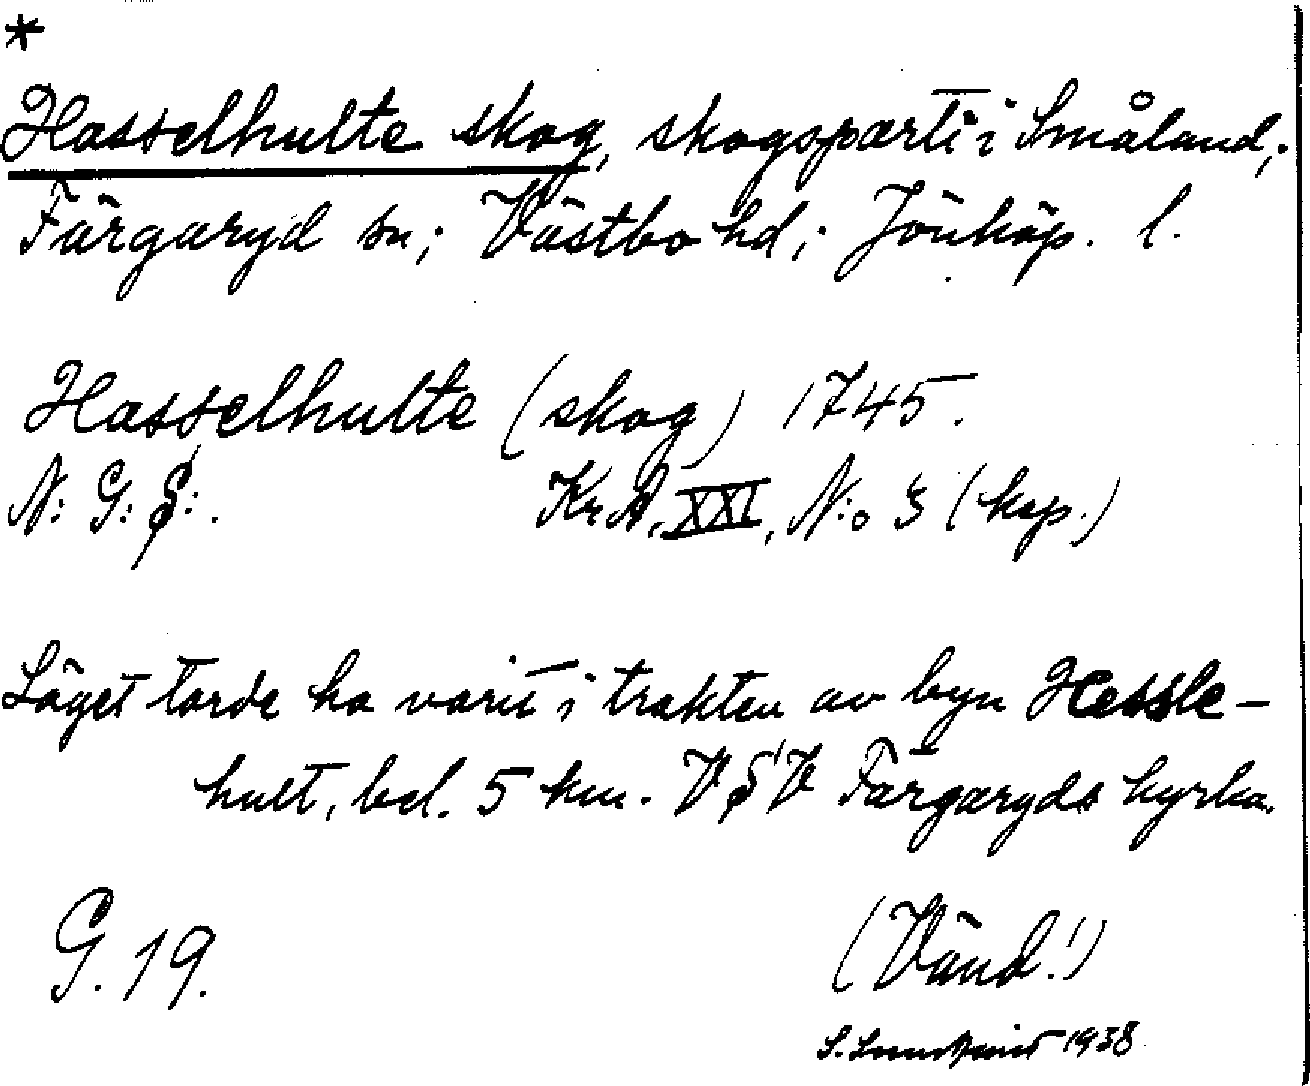 *
Hasselhulte skog, skogsparti i Småland;
Färgaryd sn; Västbo hd; Jönköp. l.
Hasselhulte (skog) 1745.
N: G: S:.
Kr.A. XXI, N:o 3 (kop.)
Läget torde ha varit i trakten av byn Hessle-
hult, bel. 5 km. V S V Färgaryds kyrka.
G. 19.
(Vänd!)
S. 1938